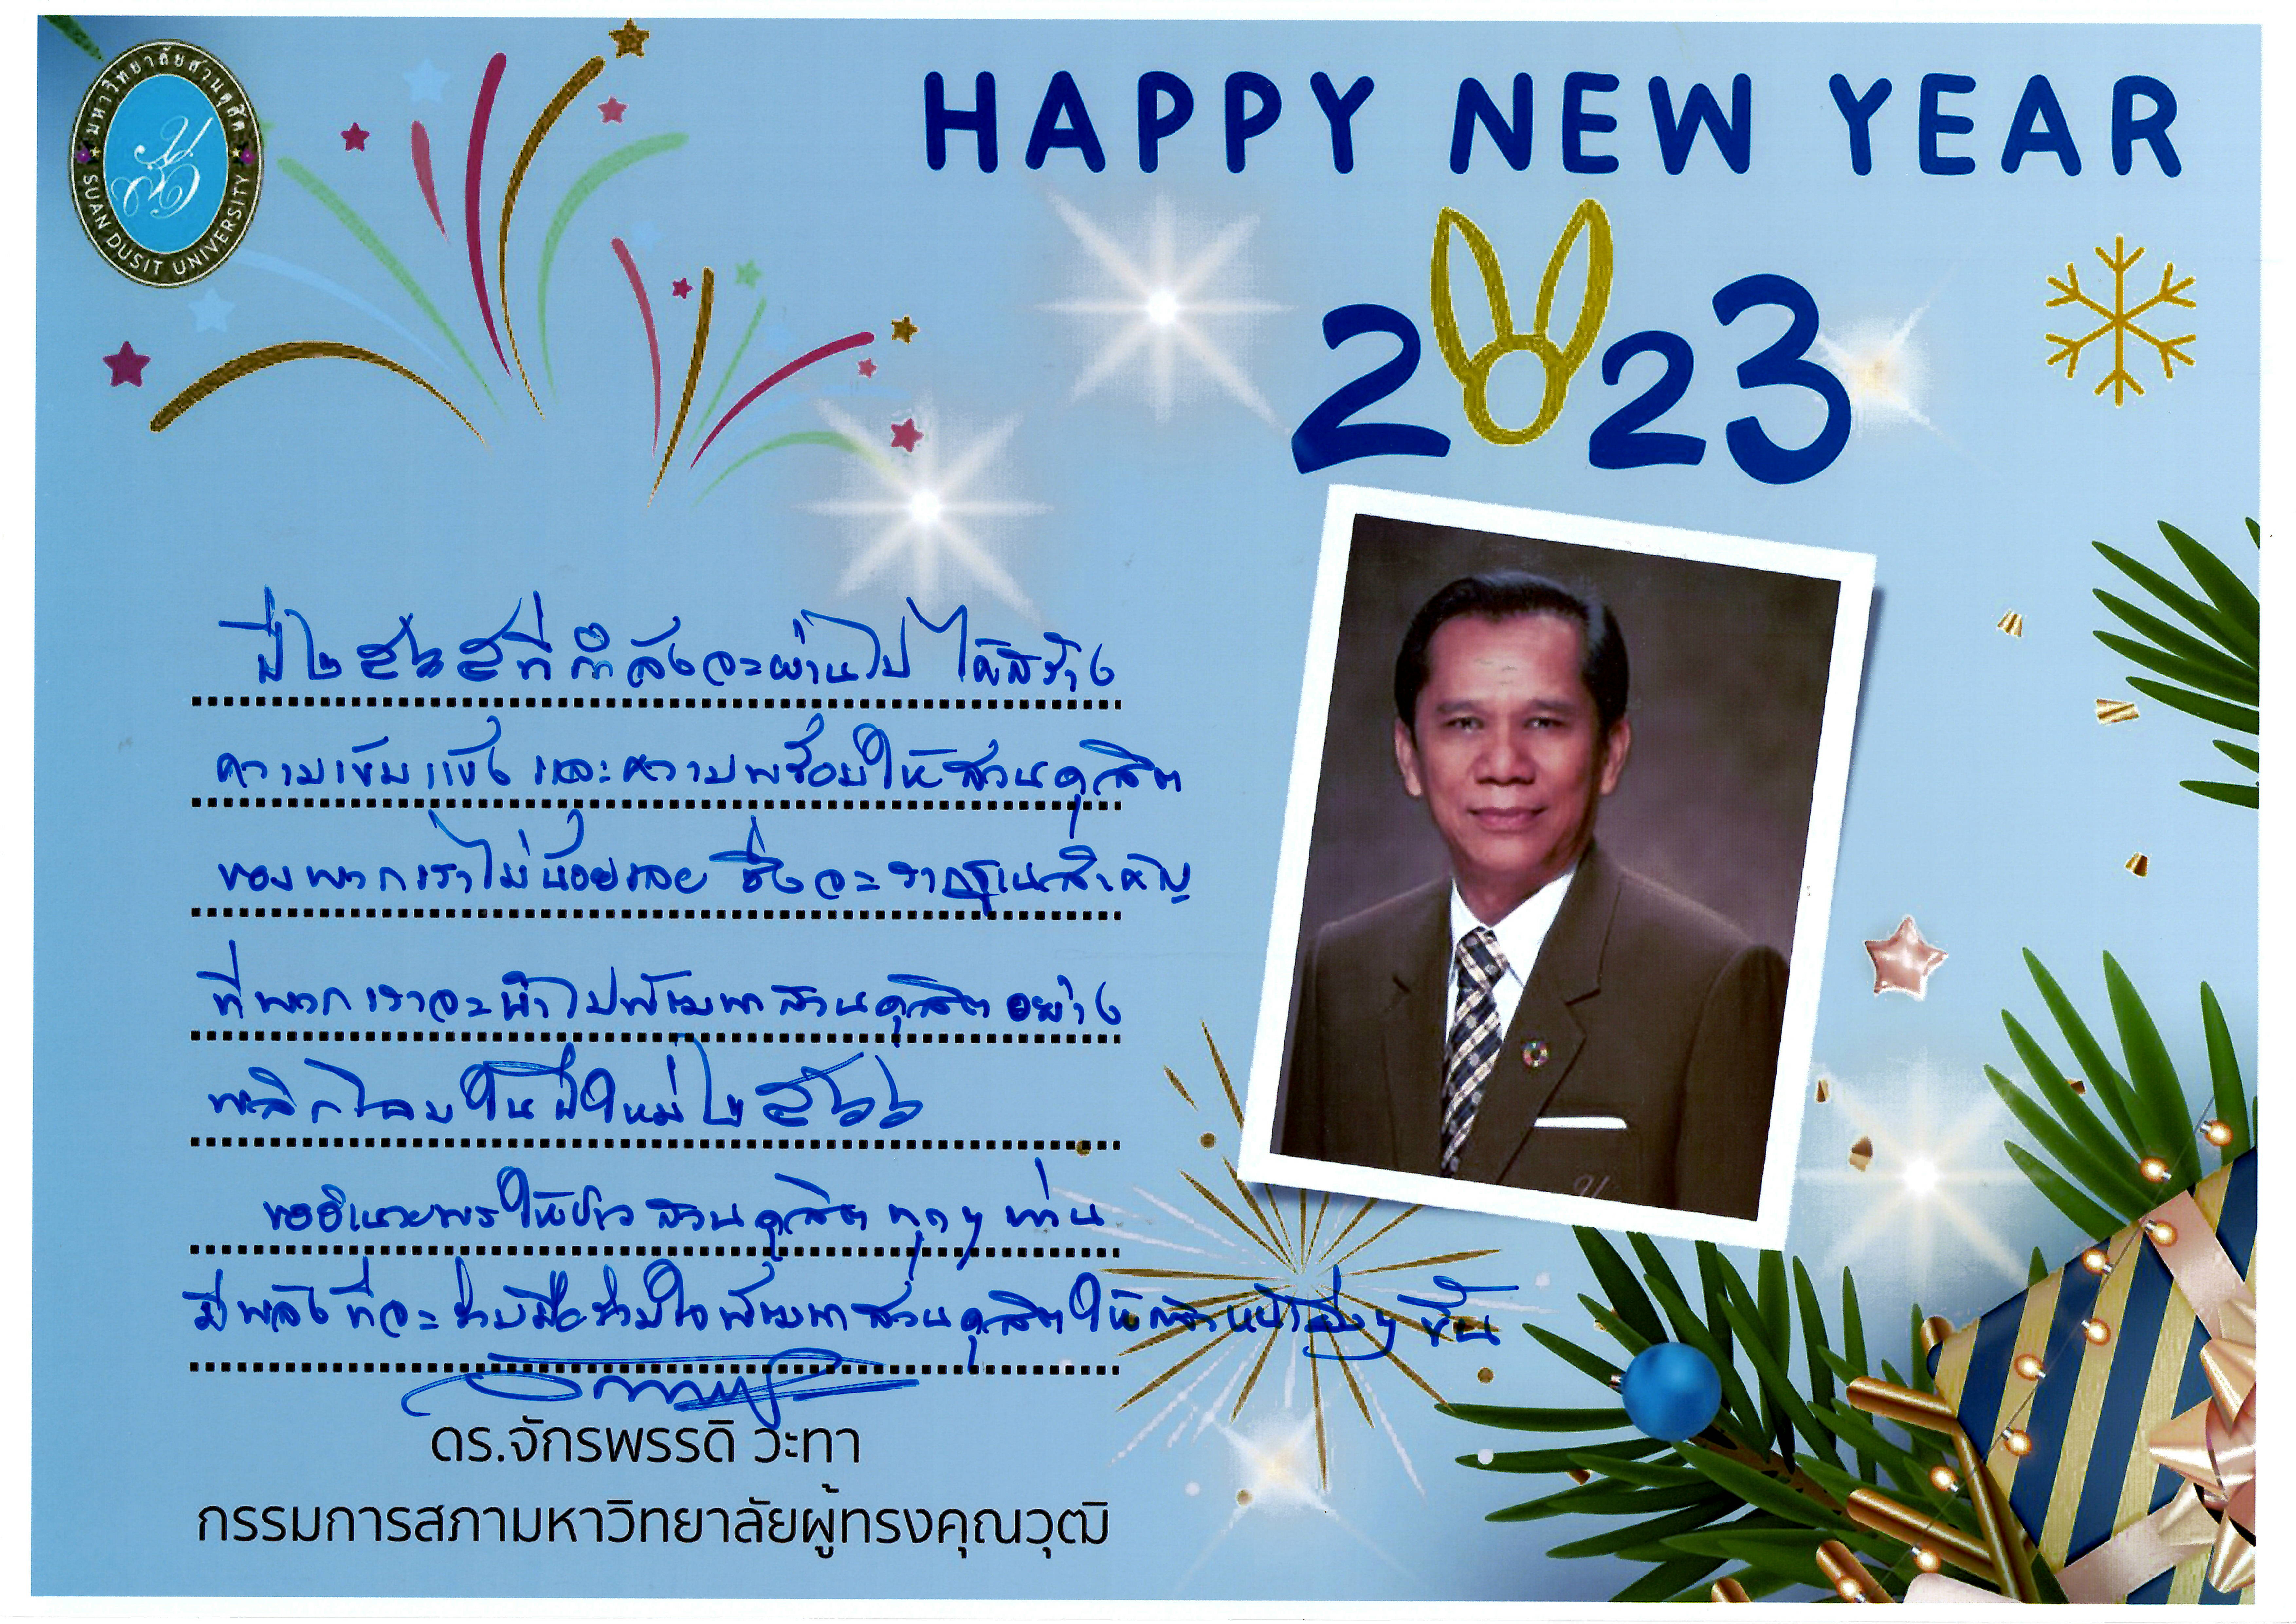 มหาวิทยาลัยสวนดุสิต
SUAN DUSIT UNIVERSITY
HAPPY NEW YEAR
2023
ปี ๒๕๖๕ ที่กำลังจะผ่านไป ได้สร้าง
ความเข้มแข็ง และความพร้อมให้สวนดุสิต
ของพวกเราไม่น้อยเลย ซึ่งจะรากฐานสำคัญ
ที่พวกเราจะนำไปพัฒนาสวนดุสิตอย่าง
พลิกโฉมในปีใหม่ ๒๕๖๖
ขออำนวยพรให้ชาวสวนดุสิตทุกๆ ท่าน
มีพลังที่จะร่วมมือร่วมใจพัฒนาสวนดุสิตให้ก้าวหน้ายิ่งๆ ขึ้น
ดร.จักรพรรดิ วะทา
กรรมการสภามหาวิทยาลัยผู้ทรงคุณวุฒิ